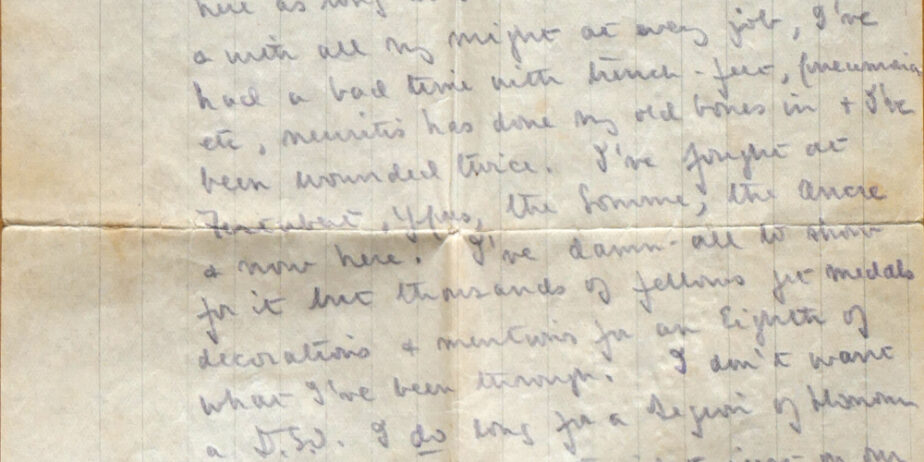 here as long
a with all my might at every job, I've
had a bad time with trench-feet, pneumonia
etc, neuritis has done my old bones in + I've
been wounded twice. I've fought at
Festubert, Ypres, the Somme, the Ancre
& now here. I've damn-all to show
for it but thousands of fellows get medals
decorations & mentions for an Eighth of
what I've been through. I don't want
a D.S.O. I do long for a Legion of Honour